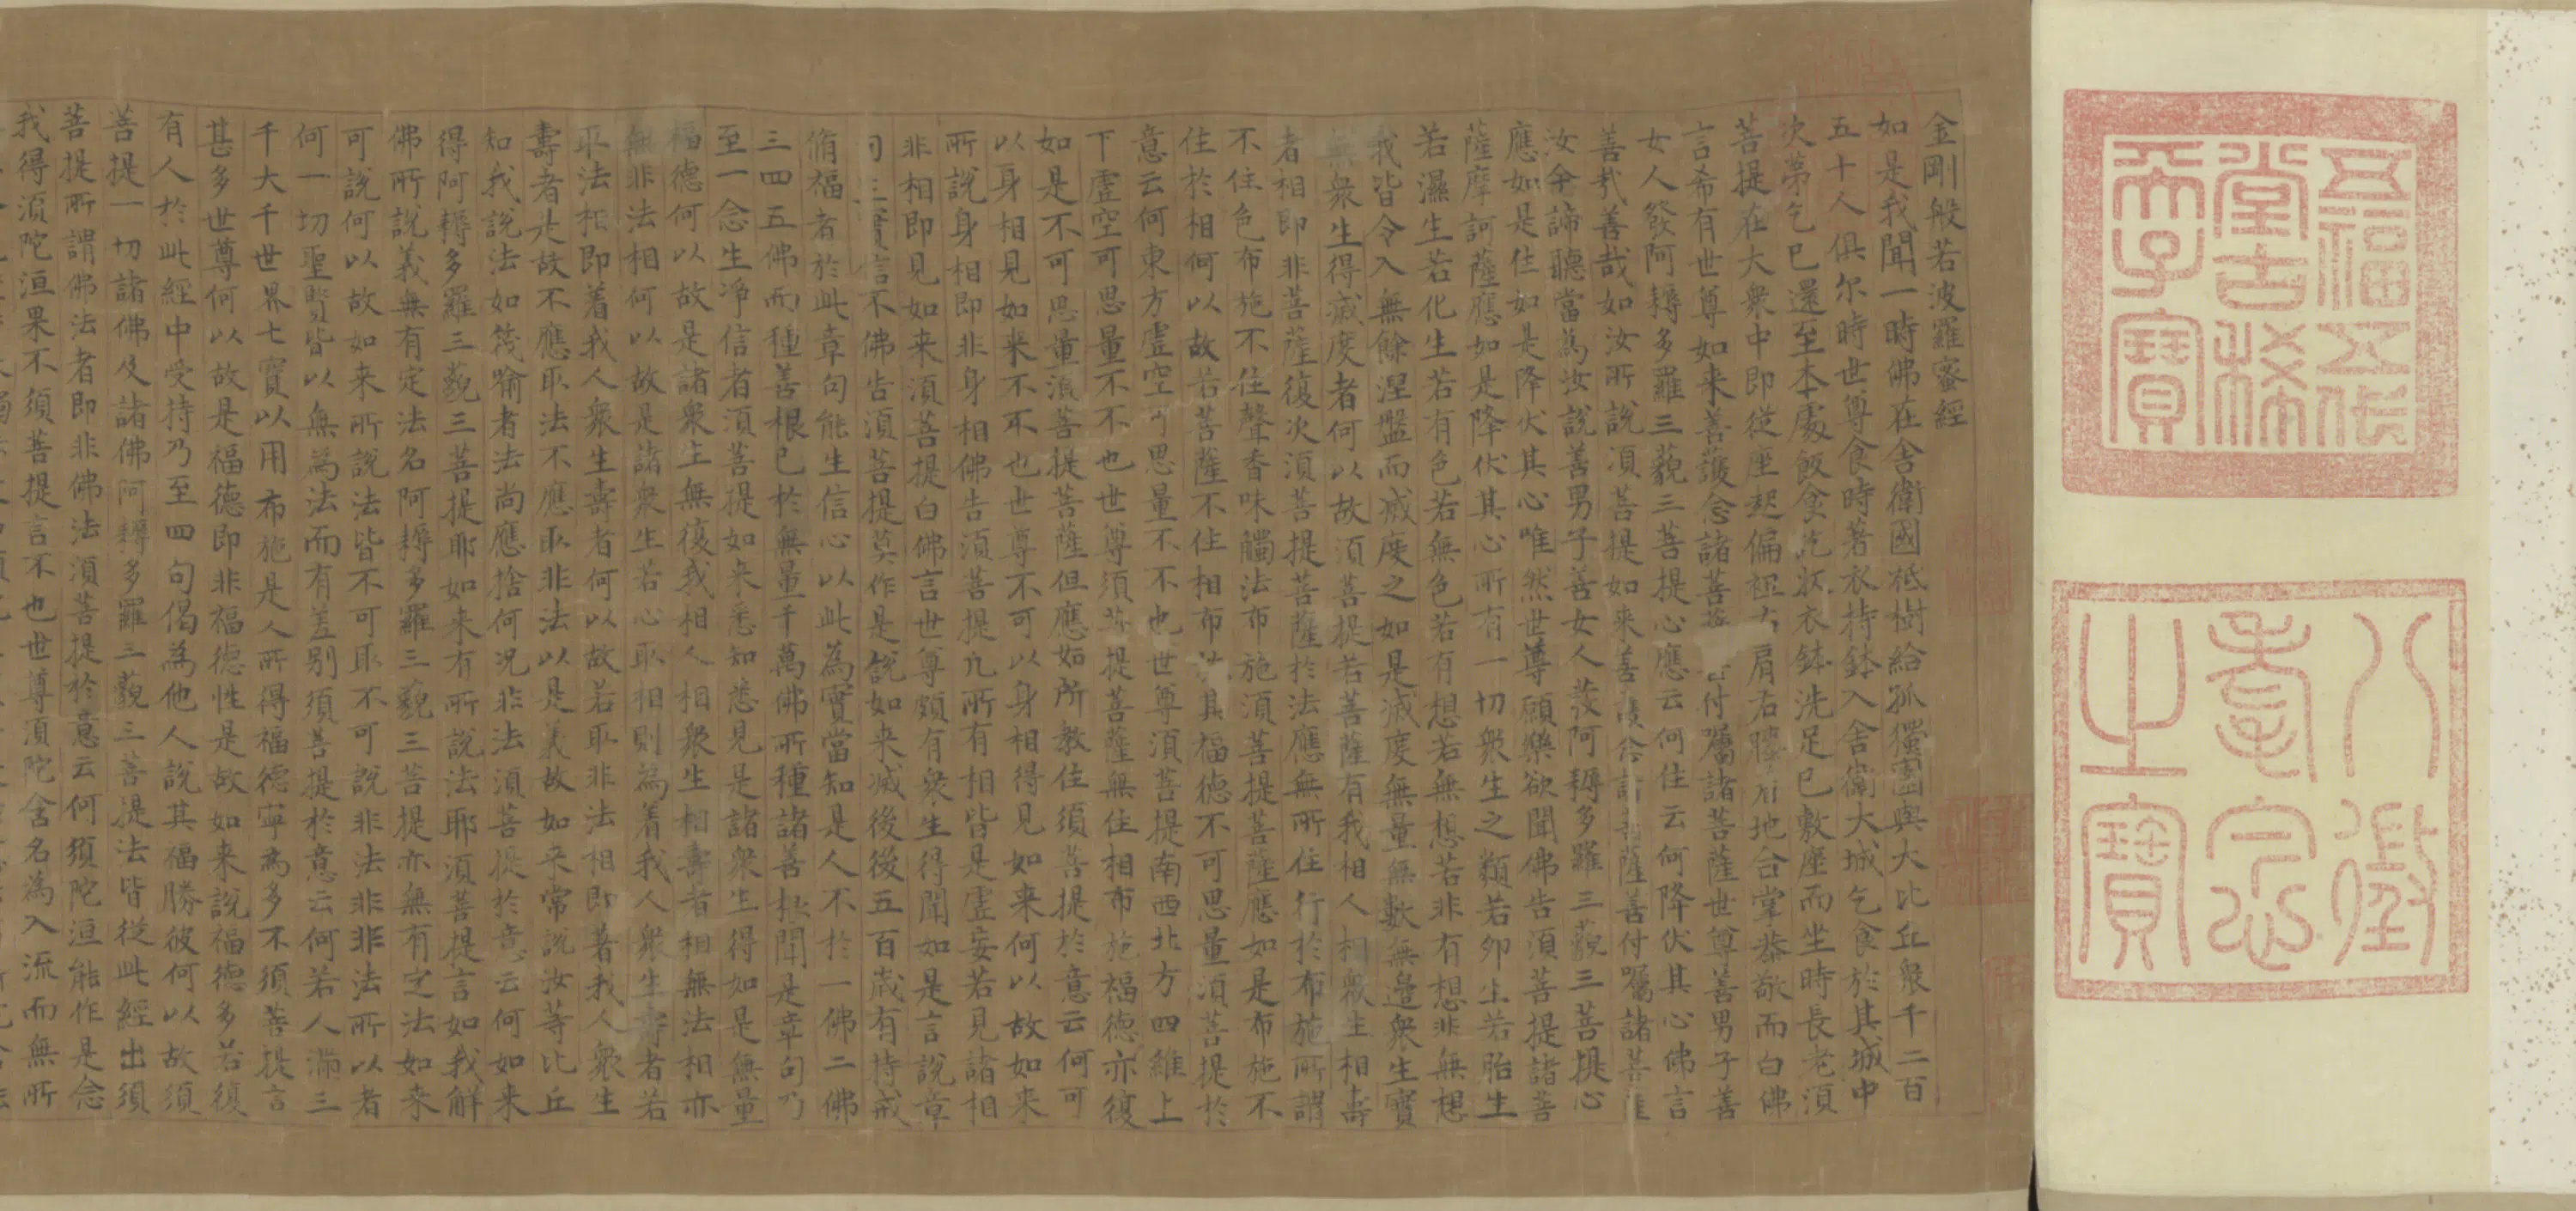 五福五代
堂古稀
天子寶
八徵
耄念
之寶
金剛般若波羅蜜經
如是我聞一時佛在舍衛國祇樹給孤獨園與大比丘衆千二百
五十人俱尔時世尊食時著衣持鉢入舍衛大城乞食於其城中
次第乞已還至本處飯食訖收衣鉢洗足已敷座而坐時長老須
菩提在大衆中即從座起偏袒右肩右膝地合掌恭敬而白佛
言希有世尊如来善護念諸菩付囑諸菩薩世尊善男子善
女人發阿耨多羅三藐三菩提心應云何住云何降伏其心佛言
善哉善哉如汝所說須菩提如来善護念諸菩薩善付囑諸菩薩
汝今諦聽當為汝說善男子善女人發阿耨多羅三藐三菩提心
應如是住如是降伏其心唯然世尊願樂欲聞佛告須菩提諸菩
薩摩訶薩應如是降伏其心所有一切衆生之類若卵生若胎生
若濕生若化生若有色若無色若有想若無想若非有想非無想
我皆令入無餘涅盤而滅度之如是滅度無量無數無邊衆生實
無衆生得滅度者何以故須菩提若菩薩有我相人相衆生相壽
者相即非菩薩復次須菩提菩薩於法應無所住行於布施所謂
不住色布施不住聲香味觸法布施須菩提菩薩應如是布施不
住於相何以故若菩薩不住相布施其福德不可思量須菩提於
意云何東方虛空可思量不不也世尊須菩提南西北方四維上
下虛空可思量不不也世尊須菩提菩薩無住相布施福德亦復
如是不可思量須菩提菩薩但應如所教住須菩提於意云何可
以身相見如来不不也世尊不可以身相得見如来何以故如来
所說身相即非身相佛告須菩提凡所有相皆是虛妄若見諸相
非相即見如来須菩提白佛言世尊頗有衆生得聞如是言說章
句生實信不佛告須菩提莫作是說如来滅後後五百歲有持戒
脩福者於此章句能生信心以此為實當知是人不於一佛二佛
三四五佛而種善根已於無量千萬佛所種諸善根聞是章句乃
至一念生淨信者須菩提如来悉知悉見是諸衆生得如是無量
福德何以故是諸衆生無復我相人相衆生相壽者相無法相亦
無非法相何以故是諸衆生若心取相則為着我人衆生壽者若
取法相即着我人衆生壽者何以故若取非法相即著我人衆生
壽者是故不應取法不應取非法以是義故如来常說汝等比丘
知我說法如筏喻者法尚應捨何況非法須菩提於意云何如来
得阿耨多羅三藐三菩提耶如来有所說法耶須菩提言如我解
佛所說義無有定法名阿耨多羅三藐三菩提亦無有定法如来
可說何以故如来所說法皆不可取不可說非法非非法所以者
何一切聖賢皆以無為法而有差别須菩提於意云何若人滿三
千大千世界七寶以用布施是人所得福德寧為多不須菩提言
甚多世尊何以故是福德即非福德性是故如来說福德多若復
有人於此經中受持乃至四句偈為他人說其福勝彼何以故須
菩提一切諸佛及諸佛阿耨多羅三藐三菩提法皆從此經出須
菩提所謂佛法者即非佛法須菩提於意云何須陀洹能作是念
我得須陀洹果不須菩提言不也世尊須陀舍名為入流而無所